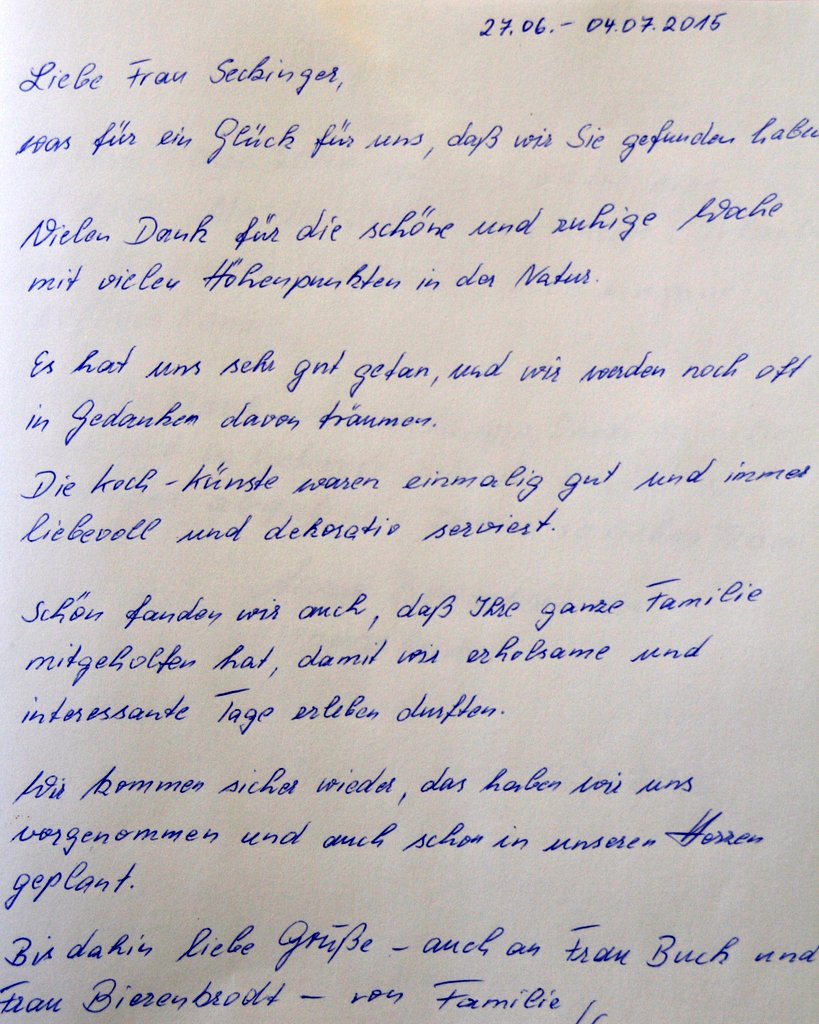 27.06.- 04.07.2015
Liebe Frau Seckinger,
was für ein Glück für uns, daß wir Sie gefunden haben
Vielen Dank für die schöne und ruhige Woche
mit vielen Höhenpunkten in der Natur.
Es hat uns sehr gut getan, und wir werden noch oft
in Gedanken davon träumen.
Die Koch-Künste waren einmalig gut und immer
liebevoll und dekorativ serviert.
Schön fanden wir auch, daß Ihre ganze Familie
mitgeholfen hat, damit wir erholsame und
interessante Tage erleben durften.
Wir kommen sicher wieder, das haben wir uns
vorgenommen und auch schon in unseren Herzen
geplant.
Bis dahin liebe Grüße - auch an Frau Buck und
Frau Bierenbrodt - von Familie